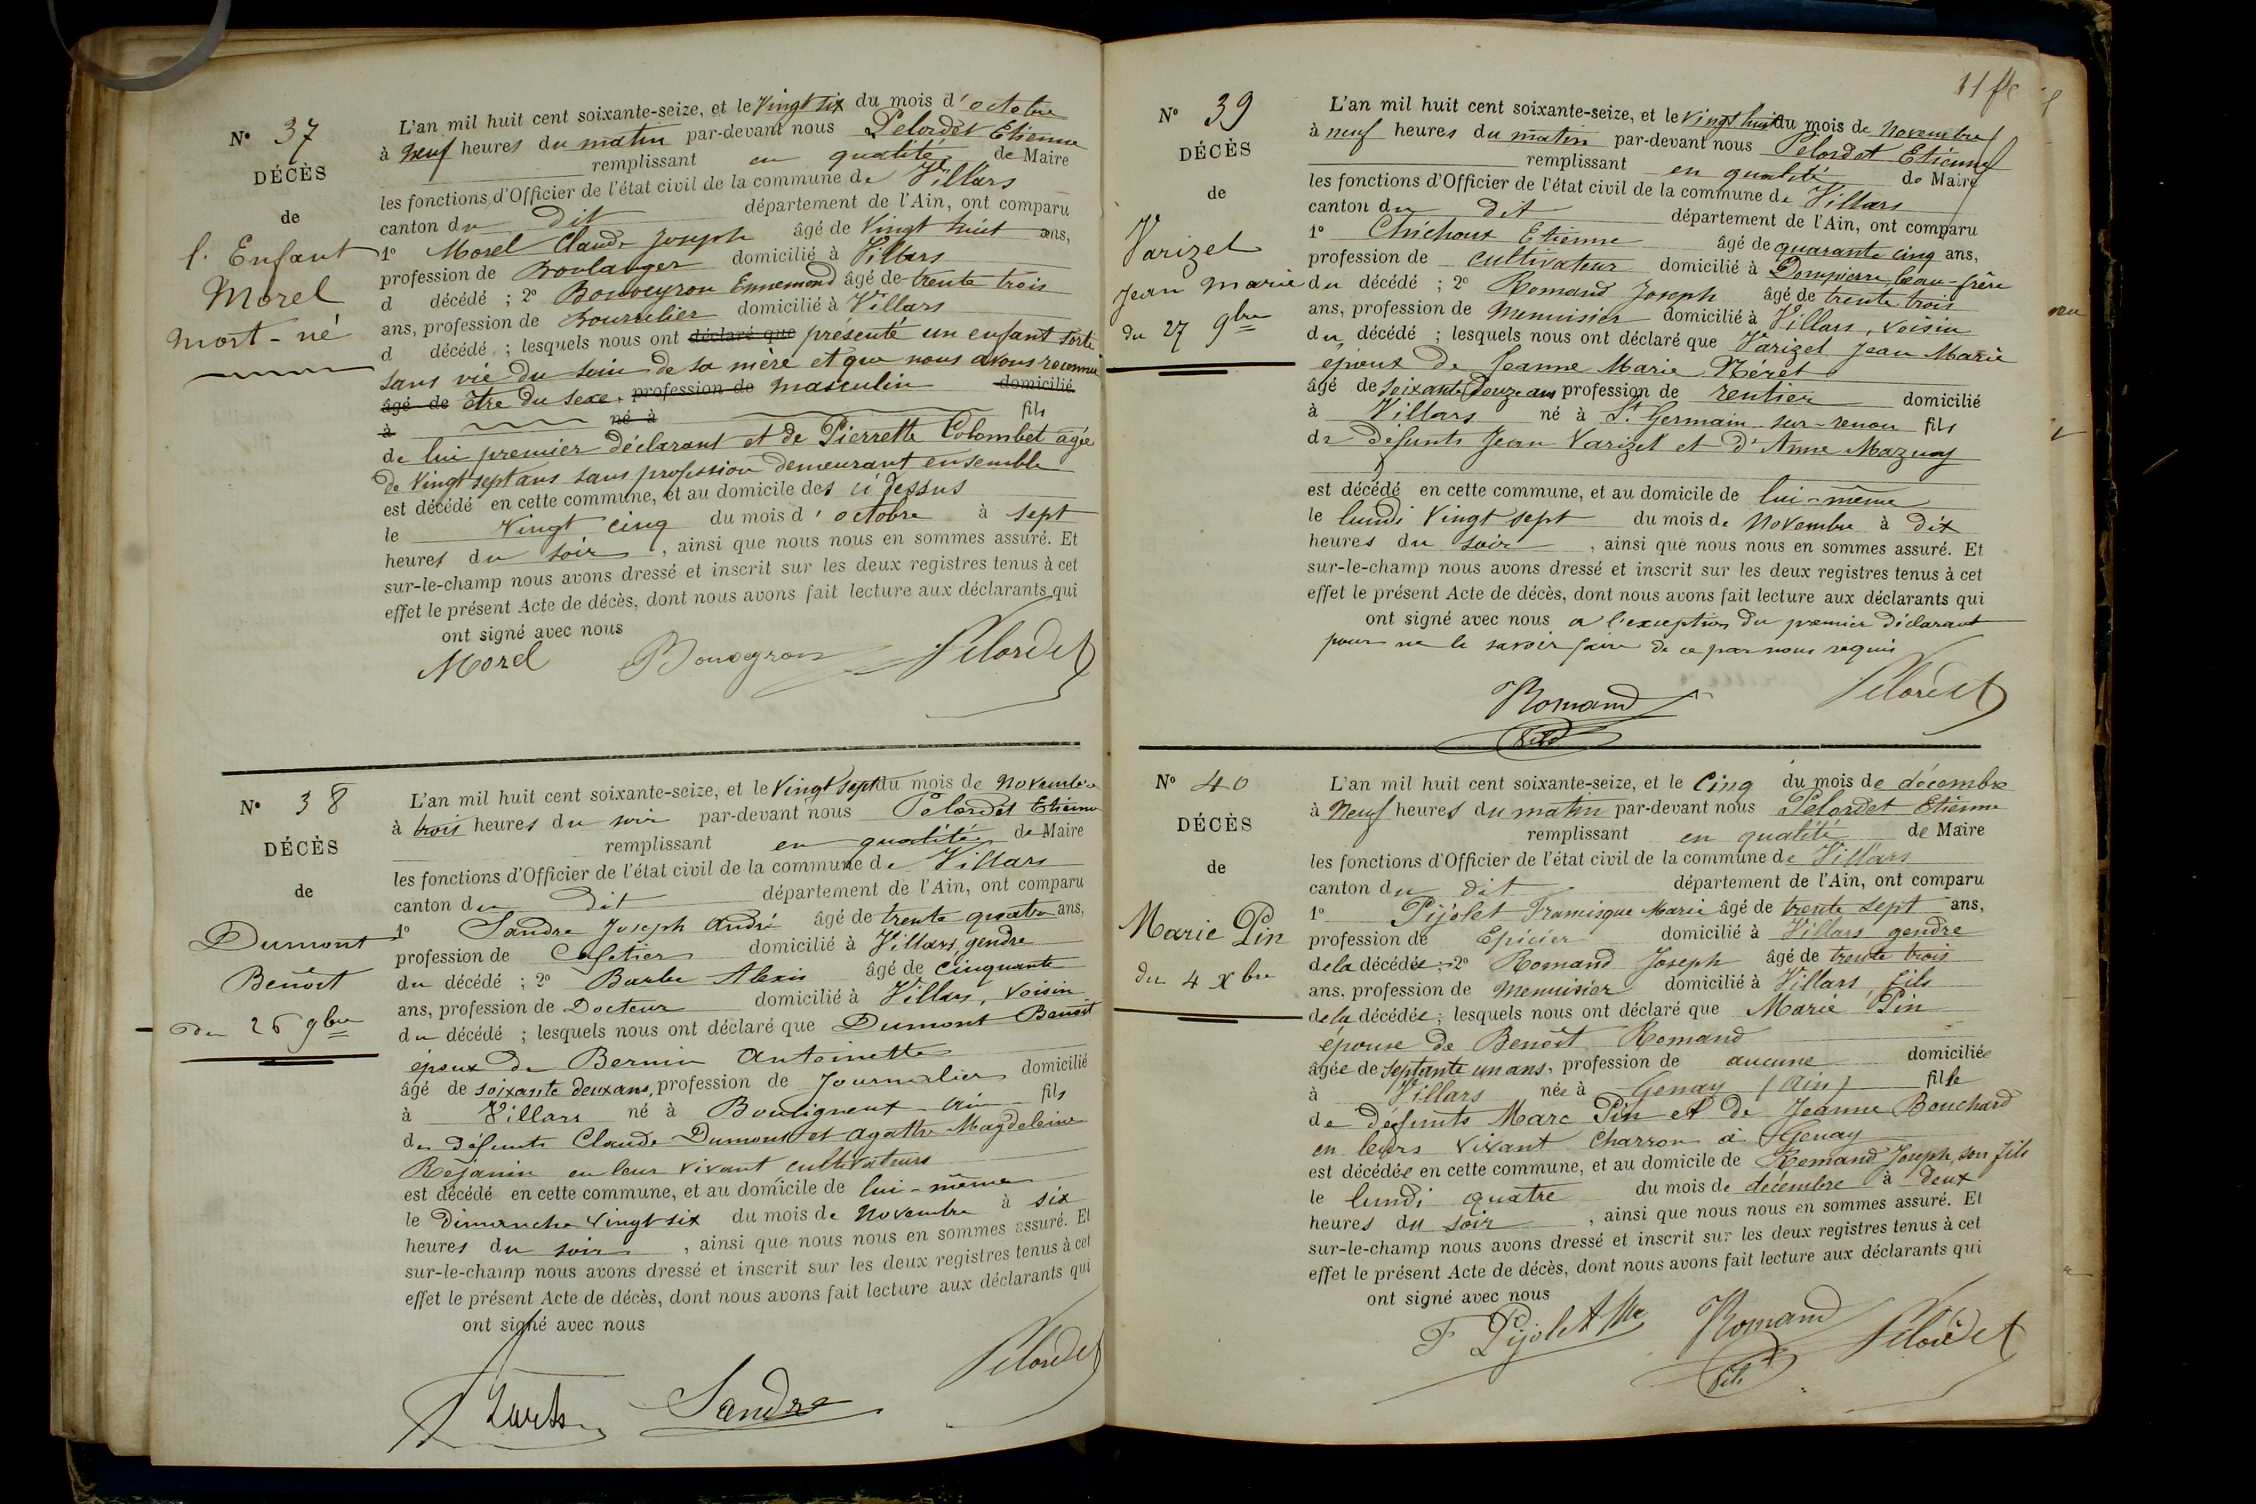 N° 37
DÉCÈS
de
l'Enfant
Morel
mort-né
L'an mil huit cent soixante-seize, et le vingt six du mois d'octobre
à neuf heures du matin par-devant nous Pelordet Etienne
remplissant en qualité de Maire
les fonctions d'Officier de l'état civil de la commune de Villars
canton du dit département de l'Ain, ont comparu
1° Morel Claude Joseph âgé de vingt huit ans,
profession de Boulanger domicilié à Villars
d décédé ; 2° Bouveyron Ennemond âgé de trente trois
ans, profession de Bourrelier domicilié à Villars
d décédé ; lesquels nous ont déclaré que présenté un enfant sorti
sans vie du sein de sa mère et que nous avons reconnu
âgé de être du sexe profession de masculin domicilié
à né à fils
de lui premier déclarant et de Pierrette Colombet agée
de vingt sept ans sans profession demeurant ensemble
est décédé en cette commune, et au domicile des ci dessus
le vingt cinq du mois d'octobre à sept
heures du soir, ainsi que nous nous en sommes assuré. Et
sur-le-champ nous avons dressé et inscrit sur les deux registres tenus à cet
effet le présent Acte de décès, dont nous avons fait lecture aux déclarants qui
ont signé avec nous
Morel Bouveyron Pelordet
N° 38
DÉCÈS
de
Dumont
Benoit
du 26 9bre
L'an mil huit cent soixante-seize, et le vingt sept du mois de novembre
à trois heures du soir par-devant nous Pelordet Etienne
remplissant en qualité de Maire
les fonctions d'Officier de l'état civil de la commune de Villars
canton du dit département de l'Ain, ont comparu
1° Sandre Joseph André âgé de trente quatre ans,
profession de Cafetier domicilié à Villars, gendre
du décédé ; 2° Barbe Alexis âgé de cinquante
ans, profession de Docteur domicilié à Villars, voisin
du décédé ; lesquels nous ont déclaré que Dumont Benoit
époux de Bernin Antoinette
âgé de soixante deux ans, profession de Journalier domicilié
à Villars né à Bouligneux Ain fils
de défunts Claude Dumont et Agathe Magdeleine
Réjanin en leur vivant cultivateurs
est décédé en cette commune, et au domicile de lui-même
le Dimanche vingt six du mois de Novembre à six
heures du soir, ainsi que nous nous en sommes assuré. Et
sur-le-champ nous avons dressé et inscrit sur les deux registres tenus à cet
effet le présent Acte de décès, dont nous avons fait lecture aux déclarants qui
ont signé avec nous
Sandre Pelordet
11
N° 39
DÉCÈS
de
Varizet
Jean Marie
du 27 9bre
L'an mil huit cent soixante-seize, et le vingt huit du mois de Novembre
à neuf heures du matin par-devant nous Pelordet Etienne
remplissant en qualité de Maire
les fonctions d'Officier de l'état civil de la commune de Villars
canton du dit département de l'Ain, ont comparu
1° Chichoux Etienne âgé de quarante cinq ans,
profession de cultivateur domicilié à Dompierre, beau-frère
du décédé ; 2° Romand Joseph âgé de trente trois
ans, profession de Menuisier domicilié à Villars, voisin
du décédé ; lesquels nous ont déclaré que Varizet Jean Marie
époux de Jeanne Marie
âgé de soixante Douze ans profession de rentier domicilié
à Villars né à St Germain sur-renon fils
de défunts Jean Varizet et d'Anne Mazuy
est décédé en cette commune, et au domicile de lui-même
le lundi vingt sept du mois de Novembre à dix
heures du soir, ainsi que nous nous en sommes assuré. Et
sur-le-champ nous avons dressé et inscrit sur les deux registres tenus à cet
effet le présent Acte de décès, dont nous avons fait lecture aux déclarants qui
ont signé avec nous a l'exception du premier déclarant
pour ne le savoir faire de ce par nous requis
Romand Pelordet
fils
N° 40
DÉCÈS
de
Marie Pin
du 4 Xbre
L'an mil huit cent soixante-seize, et le cinq du mois de décembre
à neuf heures du matin par-devant nous Pelordet Etienne
remplissant en qualité de Maire
les fonctions d'Officier de l'état civil de la commune de Villars
canton du dit département de l'Ain, ont comparu
1° Pijolet Francisque Marie âgé de trente sept ans,
profession de Epicier domicilié à Villars gendre
de la décédée ; 2° Romand Joseph âgé de trente trois
ans, profession de Menuisier domicilié à Villars, fils
de la décédée ; lesquels nous ont déclaré que Marie Pin
épouse de Benoit Romand
âgée de septante un ans, profession de aucune domiciliée
à Villars née à Genay (Ain) fille
de défunts Marc Pin et de Jeanne Bouchard
en leurs vivant charron à Genay
est décédée en cette commune, et au domicile de Romand Joseph, son fils
le lundi quatre du mois de décembre à deux
heures du soir, ainsi que nous nous en sommes assuré. Et
sur-le-champ nous avons dressé et inscrit sur les deux registres tenus à cet
effet le présent Acte de décès, dont nous avons fait lecture aux déclarants qui
ont signé avec nous
F Pijolet Romand Pelordet
fils